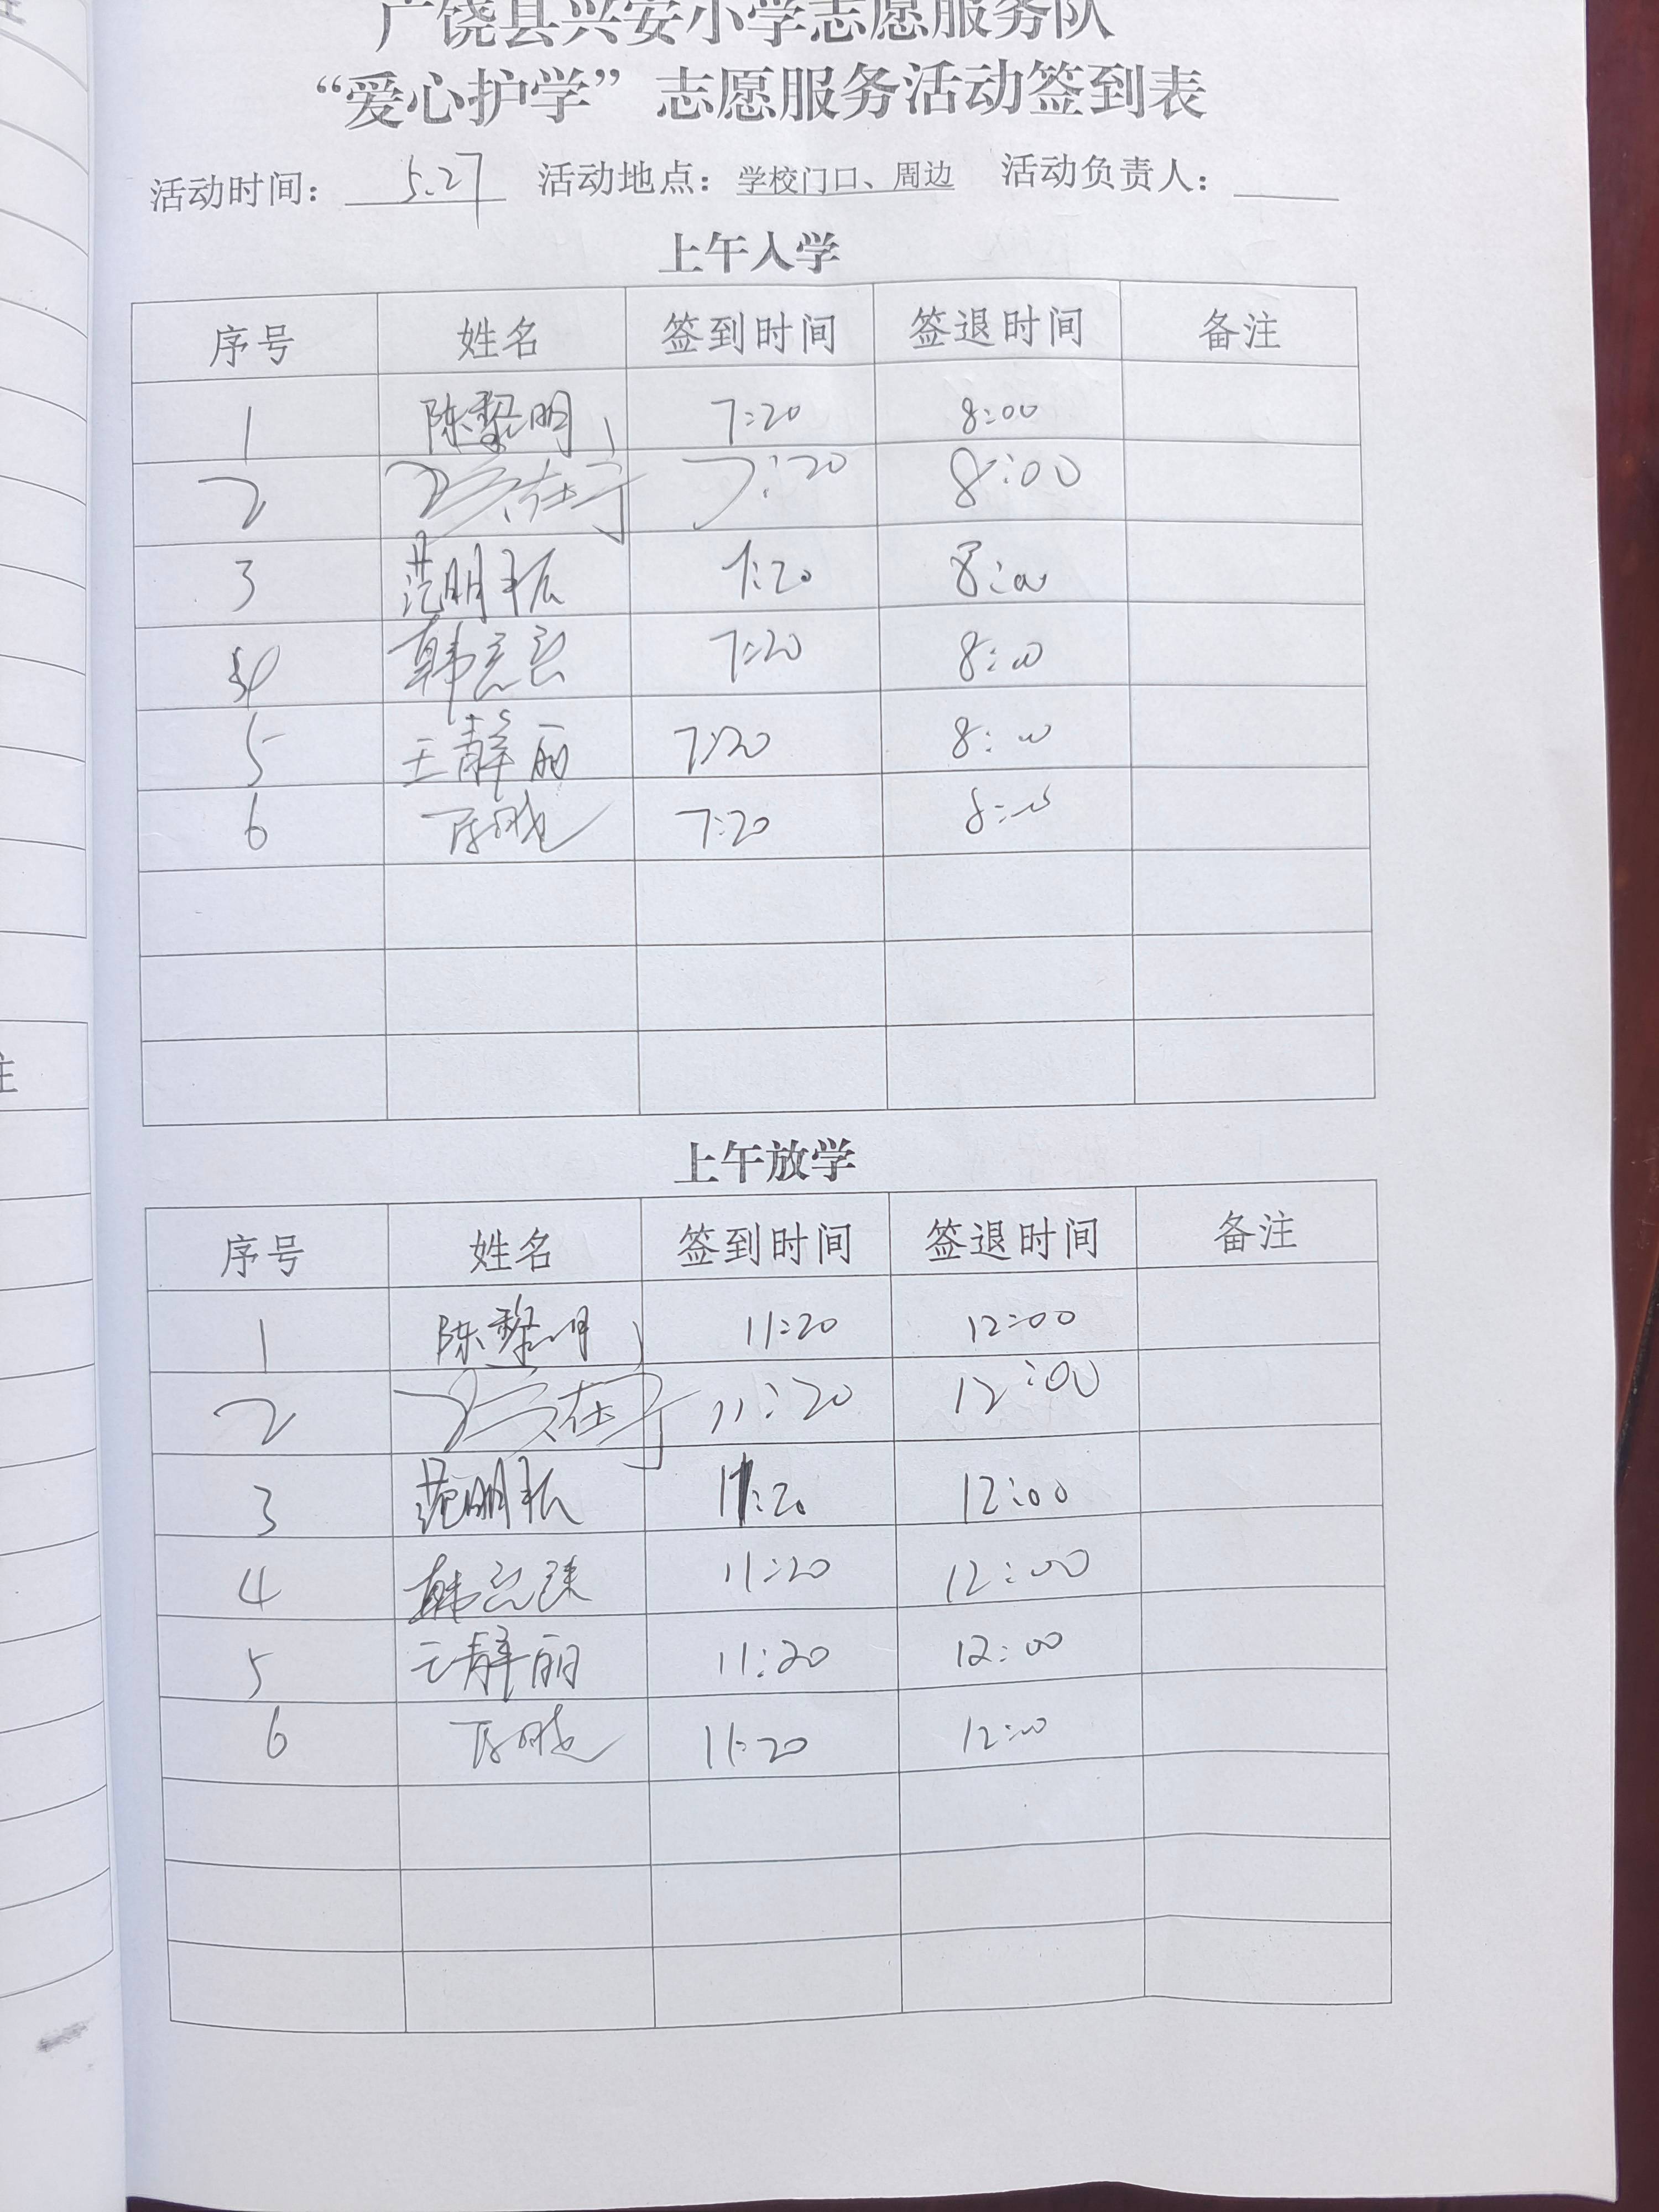 广饶县兴安小学志愿服务队
“爱心护学”志愿服务活动签到表
活动时间: 5.27 活动地点: 学校门口、周边 活动负责人:
上午入学
序号 姓名 签到时间 签退时间 备注
1 陈黎明 7:20 8:00
2 7:20 8:00
3 范明振 7:20 8:00
4 韩 7:20 8:00
5 王静丽 7:20 8:00
6 7:20 8:00
上午放学
序号 姓名 签到时间 签退时间 备注
1 陈黎明 11:20 12:00
2 11:20 12:00
3 范明振 11:20 12:00
4 韩 11:20 12:00
5 王静丽 11:20 12:00
6 11:20 12:00
注